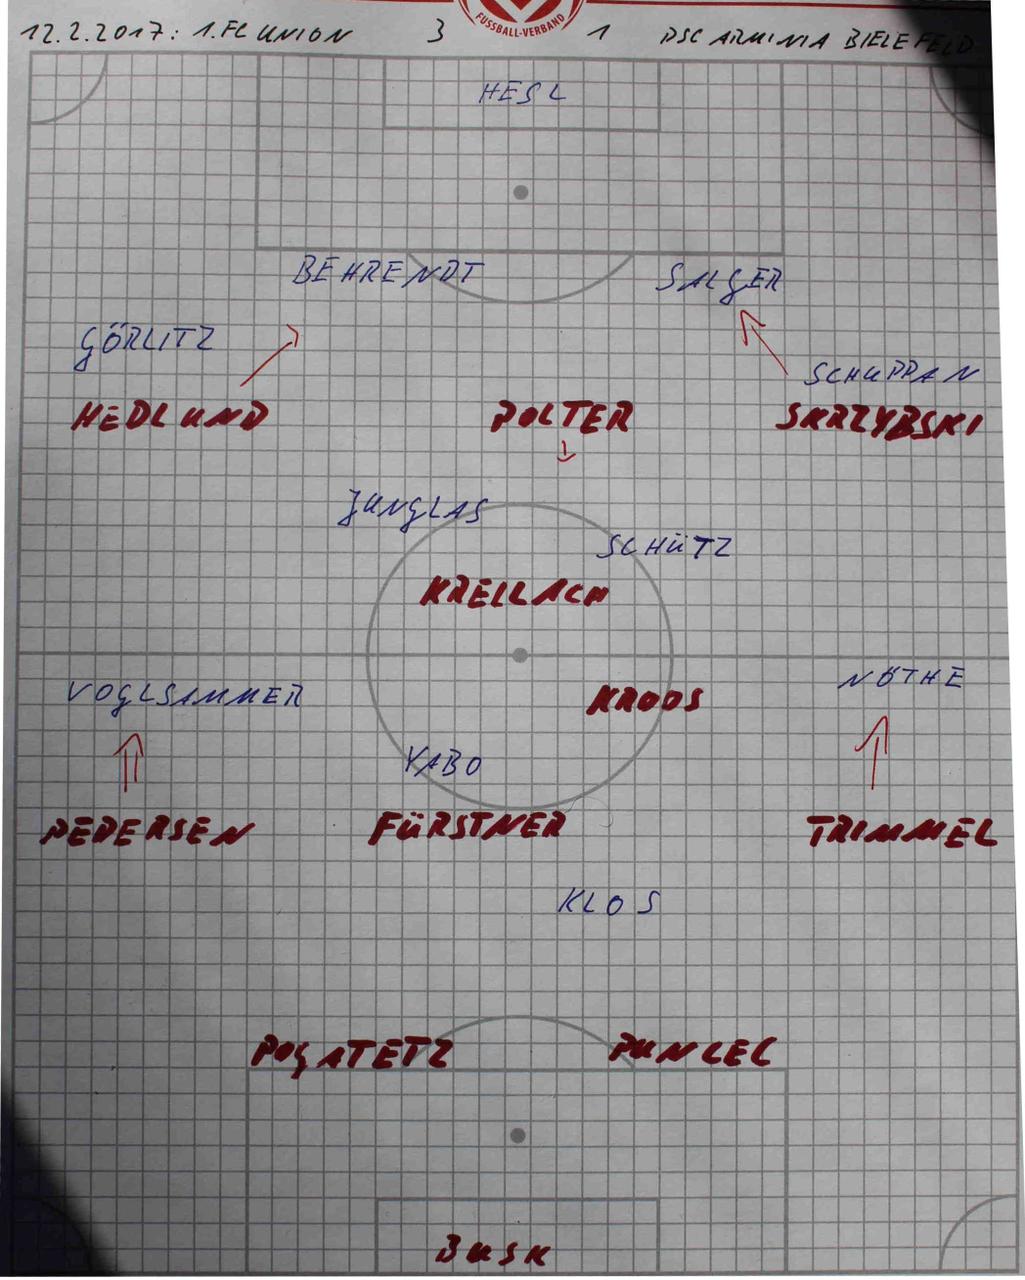 FUSSBALL-VERBAND
12.2.2017: 1.FC UNION 3 1 DSC ARMINIA BIELEFELD
HESL
BEHRENDT SALGER
GÖRLITZ
SCHUPPAN
HEDLUND POLTER SKRZYBSKI
JUNGLAS
SCHÜTZ
KREILACH
NÖTHE
VOGLSAMMER
KROOS
YABO
PEDERSEN FÜRSTNER TRIMMEL
KLOS
POGATETZ PUNCEC
BUSK